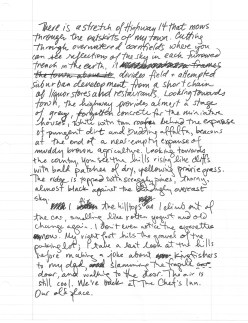 There is a stretch of Highway 14 that mows
through the outskirts of my town. Cutting
through overwatered cornfields where you
can see reflections of the sky in each furrowed
trench in the earth, it
divides field + attempted
suburban development from a short chain
of liquor stores and restaurants. Looking towards
town, the highway provides almost a stage
of gray, forgotten concrete for the miniature
choices, white with tan roofs behind the expanse
of pungent dirt and budding alfalfa, beacons
at the end of a near-empty expanse of
muddy brown agriculture. Looking towards
the country, you see the hills rising like cliffs
with bald patches of dry, yellowing prairie grass.
The ridge is topped with scraggly pines, thorny,
almost black against the blindingly overcast
sky.
the hilltops as I climb out of
the car, smelling like rotten yogurt and old
change again. I don't even notice the
anymore. My right foot hits the ground of the
parking lot; I take a last look at the hills
before making a joke about
to my dad, slamming the fragile
door, and walking to the door. The air is
still cool. We're back at The Chef's Inn.
Our old place.